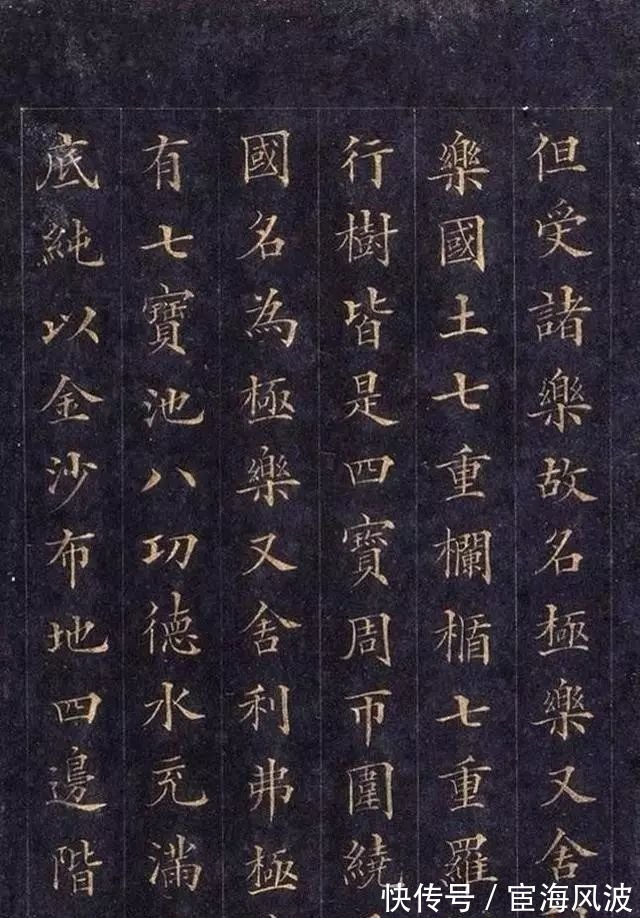 但受諸樂故名極樂又舍
樂國土七重欄楯七重羅
行樹皆是四寶周帀圍繞
國名為極樂又舍利弗極
有七寶池八功德水充滿
底純以金沙布地四邊階
快传号/宦海风波